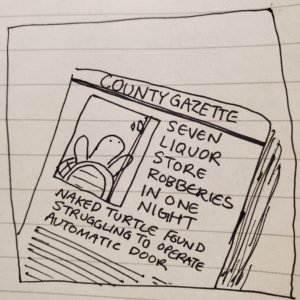 COUNTY GAZETTE
SEVEN
LIQUOR
STORE
ROBBERIES
IN ONE
NIGHT
NAKED TURTLE FOUND
STRUGGLING TO OPERATE
AUTOMATIC DOOR